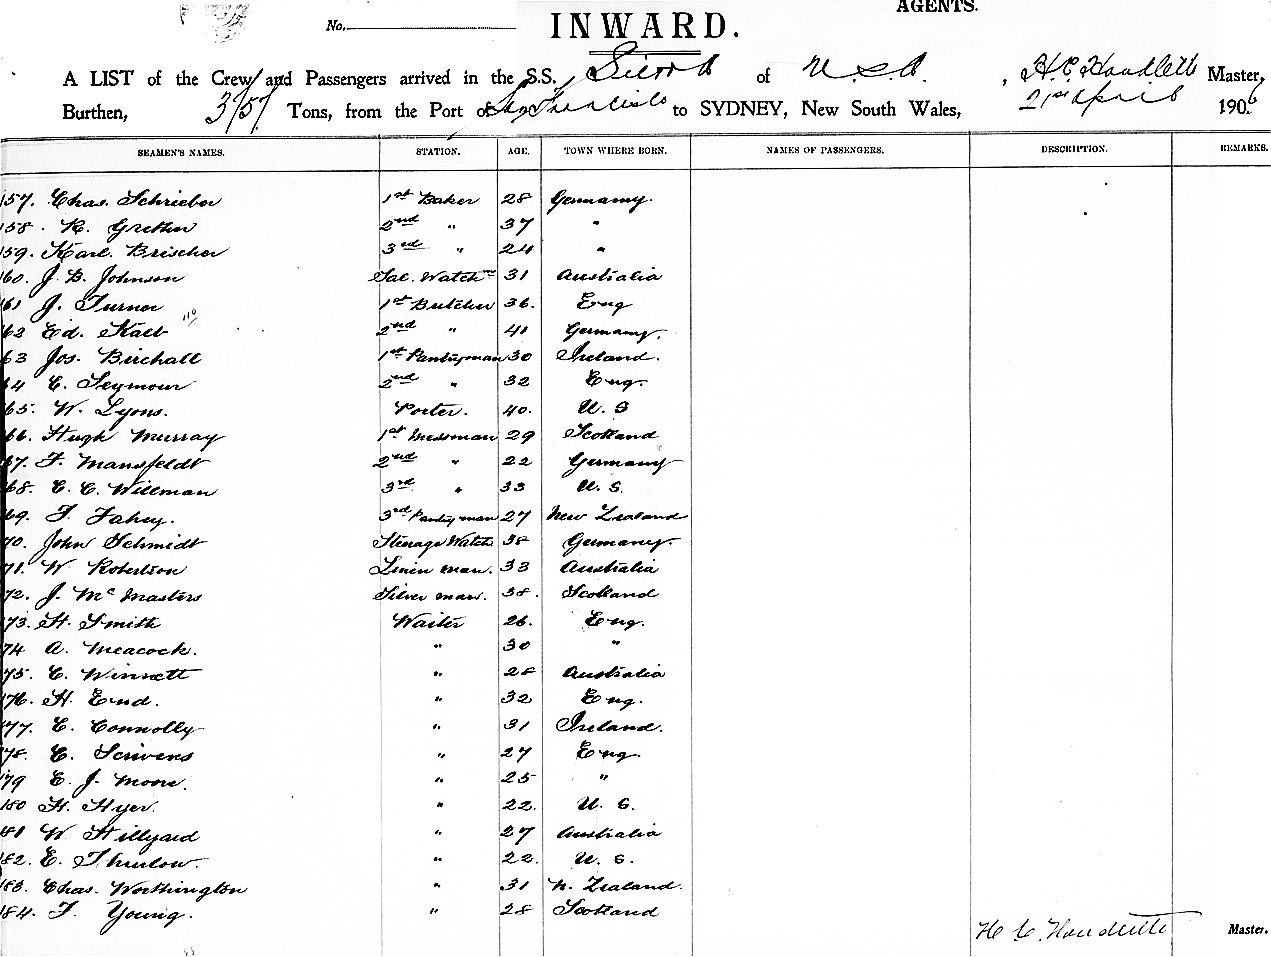 AGENTS.
No.
INWARD.
A LIST of the Crew and Passengers arrived in the S.S. Sierra of U S A. , H. C. Houdlette Master,
Burthen, 3157 Tons, from the Port of San Francisco to SYDNEY, New South Wales, 21st April 1906
SEAMEN'S NAMES. STATION. AGE. TOWN WHERE BORN. NAMES OF PASSENGERS. DESCRIPTION. REMARKS.
157. Chas. Schrieber 1st Baker 28 Germany.
158. R. Grethen 2nd " 37 "
159. Karl Brischer 3rd " 24 "
160. J. B. Johnson Sal. Watchmn 31 Australia
161 J. Turner 1st Butcher 36. Eng
62 Ed. Kalb 2nd " 41 Germany.
63 Jos. Birchall 1st Pantryman 30 Ireland.
64 C. Seymour 2nd " 32 Eng.
65. W. Lyons. Porter. 40. U. S
66. Hugh Murray 1st Messman 29 Scotland
67. F. Mansfeldt 2nd " 22 Germany
68. E. C. Willman 3rd " 33 U. S.
69. F. Fahey. 3rd Pantryman 27 New Zealand
70. John Schmidt Steerage Watch 38 Germany.
71. W Robertson Linen man. 33 Australia
72. J. McMasters Silver man. 38. Scotland
73. H. Smith Waiter 26. Eng.
74 A. Meacock. " 30 "
75. C. Winnett " 28 Australia
176. H. End. " 32 Eng.
177. C. Connolly " 31 Ireland.
178. C. Scrivens " 27 Eng.
179 E. J. Moore. " 25 "
180 H. Hyer. " 22. U. S.
181 W. Hillyard " 27 Australia
182. E. Thurlow. " 22. U. S.
183. Chas. Worthington " 31 N. Zealand.
184. F. Young. " 28 Scotland
H. C. Houdlette Master.